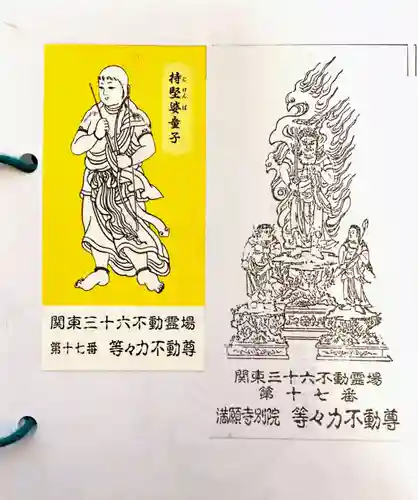 持堅婆童子
じけんば
関東三十六不動霊場
第十七番 等々力不動尊
関東三十六不動霊場
第十七番
満願寺別院 等々力不動尊